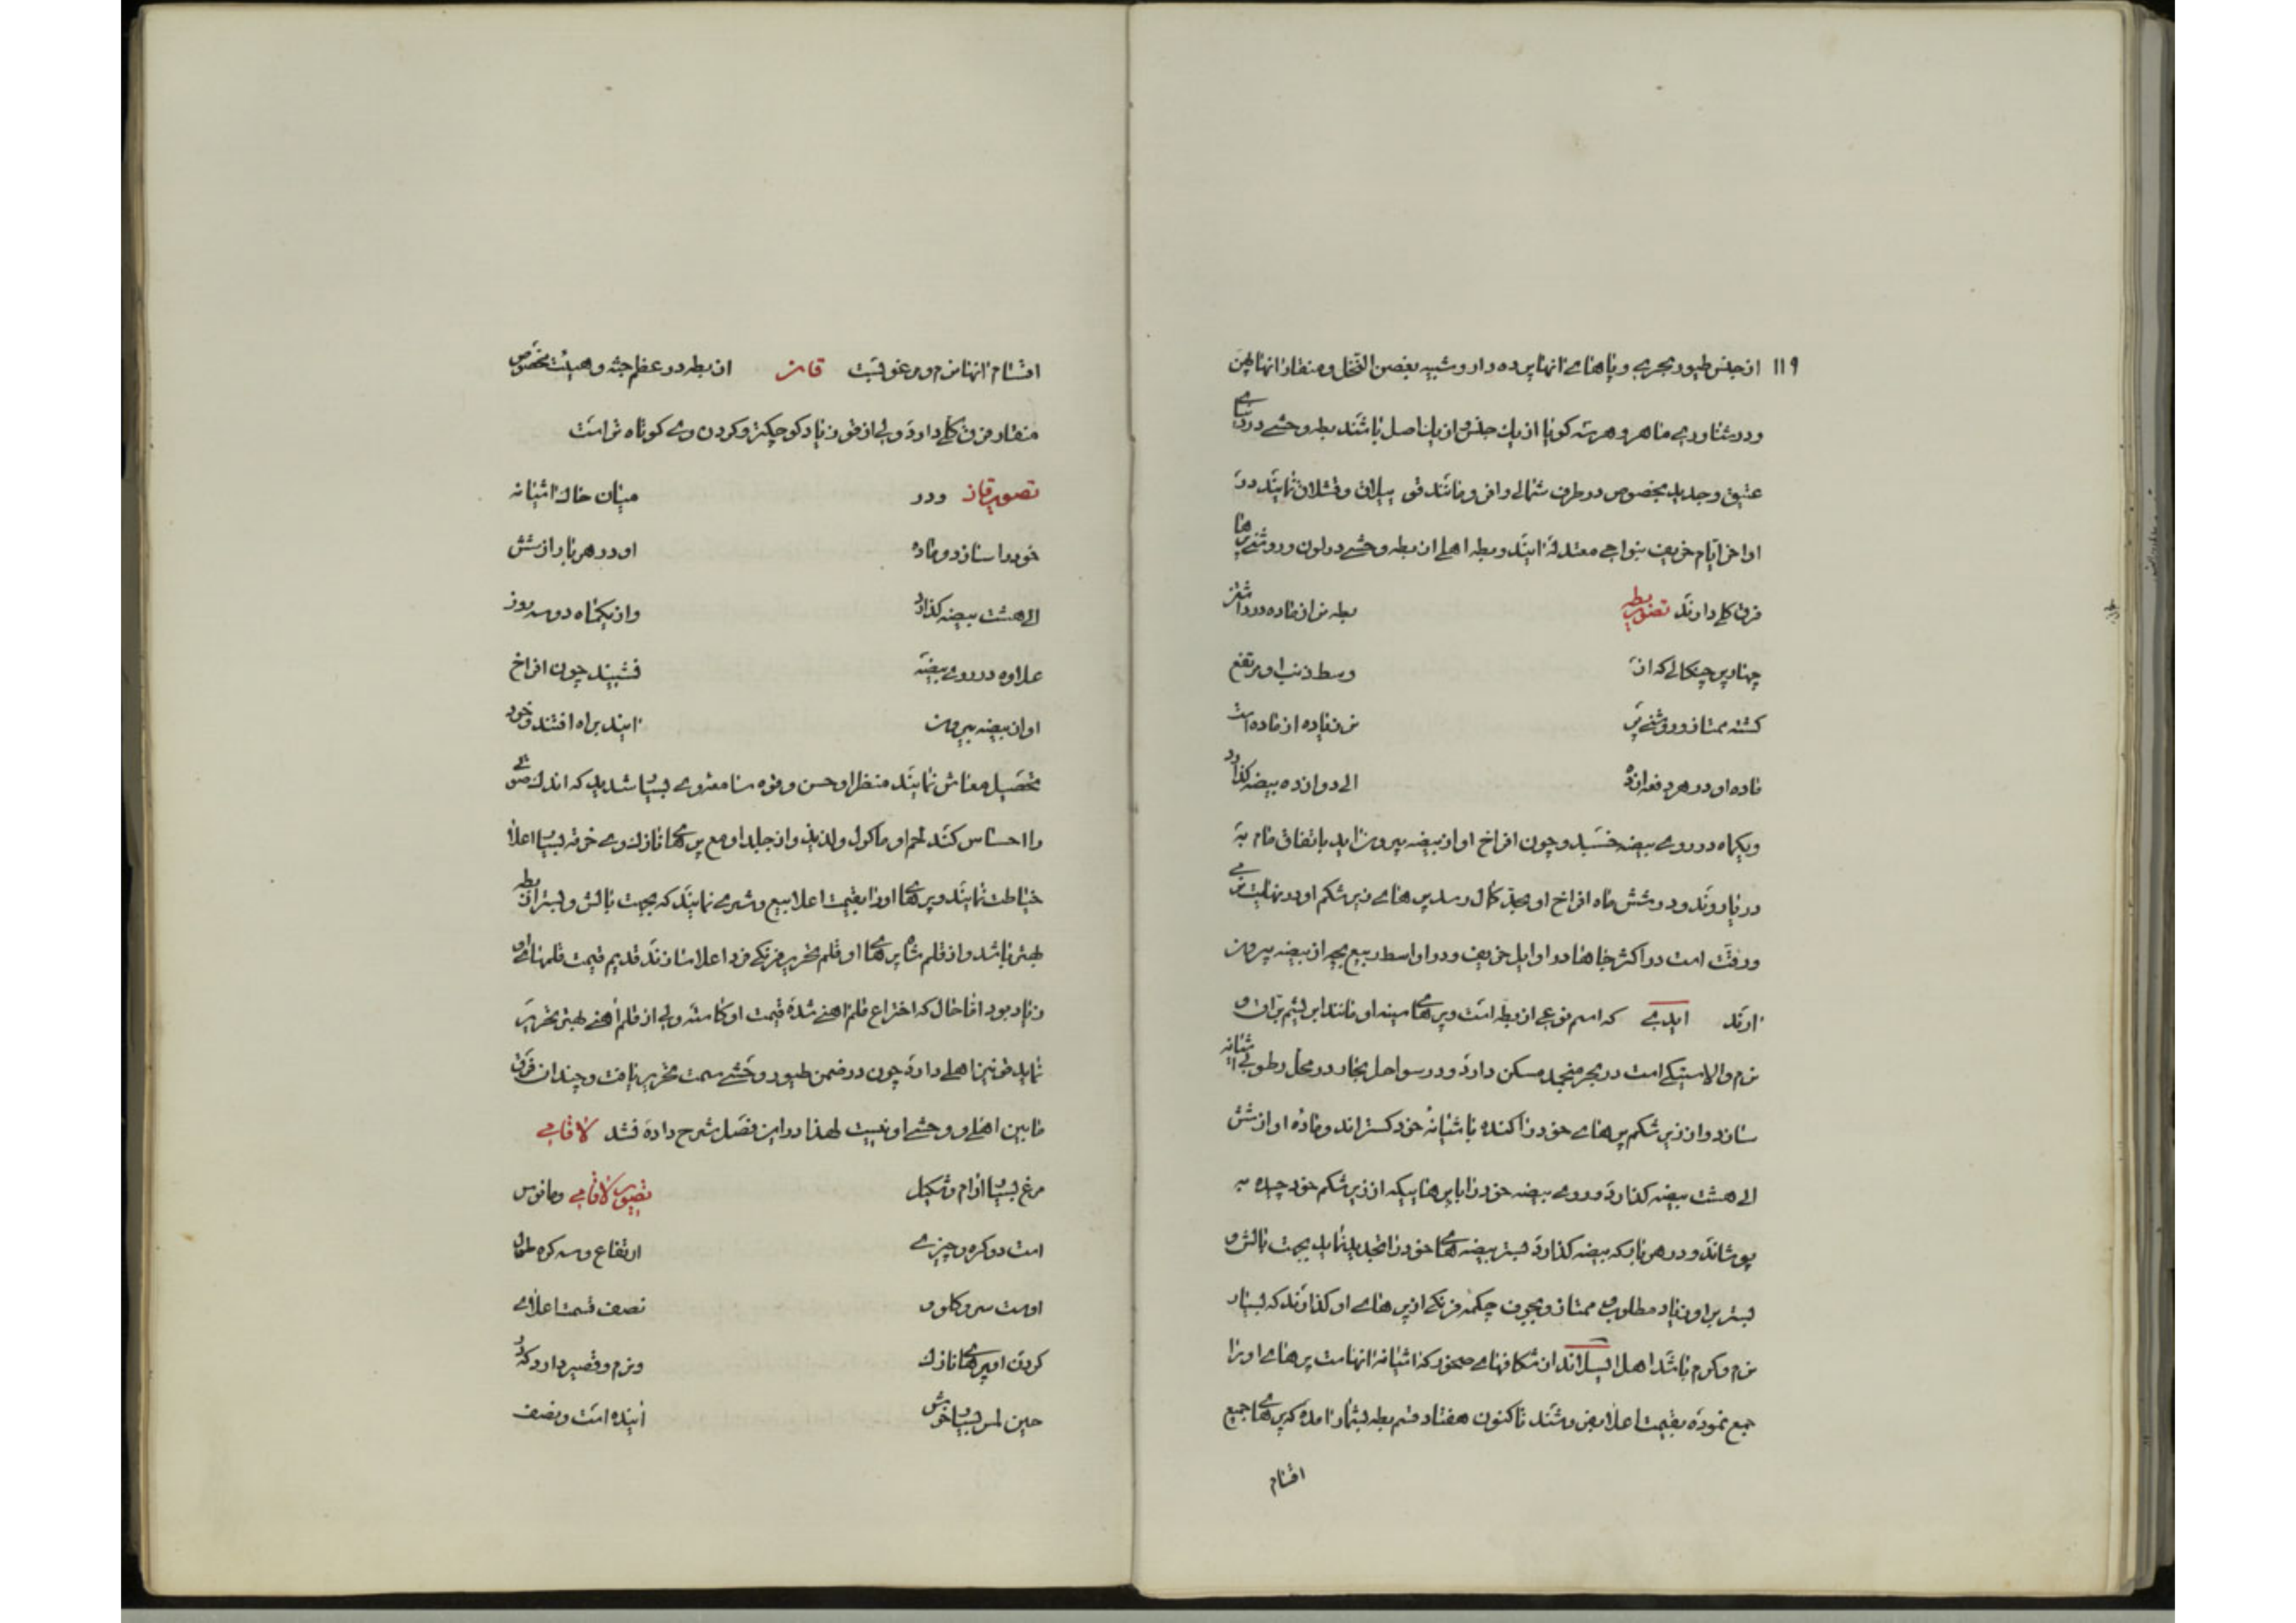 ۱۱۹
از جنس طیور بحریه و پاهای انها پرده دار و شبیه بغصن النخل و منقار انها پهن
و در شناوری ماهر و هرسه کویا از یک جنس و از یک اصل باشند بطه وحشی در دنیای
عتیق و جدید بخصوص در طرف شمالی وافر و مانند قو ییلاق و قشلاق نمایند در
اواخر ایام خریف بنواحی معتدله ایند و بطه اهلی از بطه وحشی در لون و روشنی پرها
فرق کلی دارند تصویر بطه بطه نر از ماده در
چهار پر چنکالی که از وسط ذنب او مرتفع
کشته ممتاز و روشنی پر نر زیاده از ماده است
ماده او در هر دفعه از ده الی دوازده بیضه کذارد
و یکماه در روی بیضه خسبد و چون افراخ او از بیضه بیرون اید باتفاق مام به
دریا روند و در شش ماه افراخ او بحد کمال رسد پرهای زیر شکم او در نهایت نرمی
و رقت است در اکثر جاها در اوایل خریف و در اواسط ربیع بچه از بیضه بیرون
ارند ایدری که اسم نوعی از بطه است و پرهای سینه او مانند ابریشم بران و
نرم و الاستیکی است در بحر منجمد مسکن دارد و در سواحل بحار در محل رطوبی اشیانه
سازد و از زیر شکم پرهای خود را کنده باشیانه خود کستراند و ماده او از شش
الی هشت بیضه کذارد و روی بیضه خود را با پرهاییکه از زیر شکم خود چیده به
پوشاند و در هر بار که بیضه کذارد بستر بیضه های خود را تجدید نماید بجهت بالش و
بستر پر او زیاد مطلوب و ممتاز و بجوف چکمه فرنکی از پرهای او کذارند که بسیار
نرم و کرم باشد اهل ایسلاند از شکافهای صخور که اشیانه انهاست پرهای او را
جمع نموده بقیمت اعلا بفروشند تا کنون هفتاد قسم بطه بشمار امده که پرهای جمیع
اقسام
اقسام انها نرم و مرغوبست قاز از بطه در عظم جثه و هیئت مخصوص
منقار فرق کلی دارد ولی از قو زیاد کوچکتر و کردن وی کوتاه تر است
تصویر قاز و در میان خاک اشیانه
خود را سازد و ماده او در هر بار از شش
الی هشت بیضه کذارد و از یکماه دو سه روز
علاوه در روی بیضه نشیند چون افراخ
او از بیضه بیرون ایند براه افتند و خود
تحصیل معاش نمایند منظر او حسن و قوه سامعه وی بسیار شدید که اندک صوتی
را احساس کند لحم او ماکول و لذیذ و از جلد او مع پرهای نازک وی خرقه بسیار اعلا
خیاطت نمایند و پرهای او را بقیمت اعلا بیع و شری نمایند که بجهت بالش و بستر از بطه
بهتر باشد و از قلم شاه پرهای او قلم تحریر فرنکی فرد اعلا سازند قدیم قیمت قلمهای او
زیاد بود اما حال که اختراع قلم اهنی شده قیمت او کاسته ولی از قلم اهنی بهتر تحریر
نماید قو نیز اهلی دارد چون در ضمن طیور وحشی سمت تحریر یافت و چندان فرق
مابین اهلی و وحشی او نیست لهذا در این فصل شرح داده نشد لافامی
مرغ بسیار ارام و شکیل تصویر لافامی و مانوس
است دو کره و چیزی ارتفاع و سه کره طول
اوست سر و کلو و نصف قسمت اعلای
کردن او پرهای نازک و نرم و قصیر دارد که در
حین لمس بسیار خوش ایند است و نصف